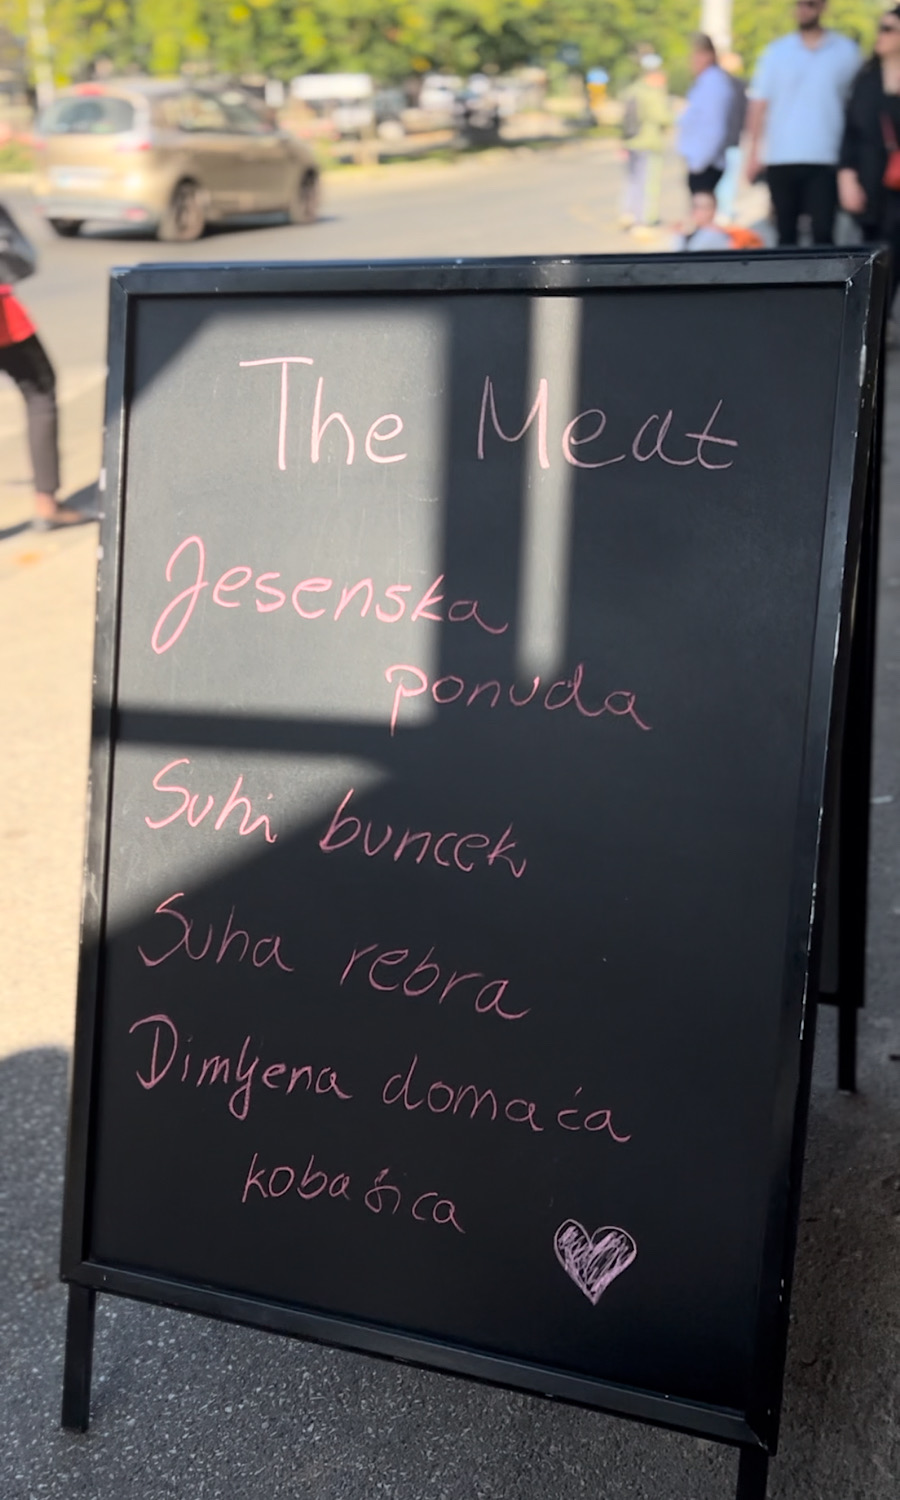 The Meat
Jesenska
ponuda
Suhi buncek
Suha rebra
Dimljena domaća
kobasica